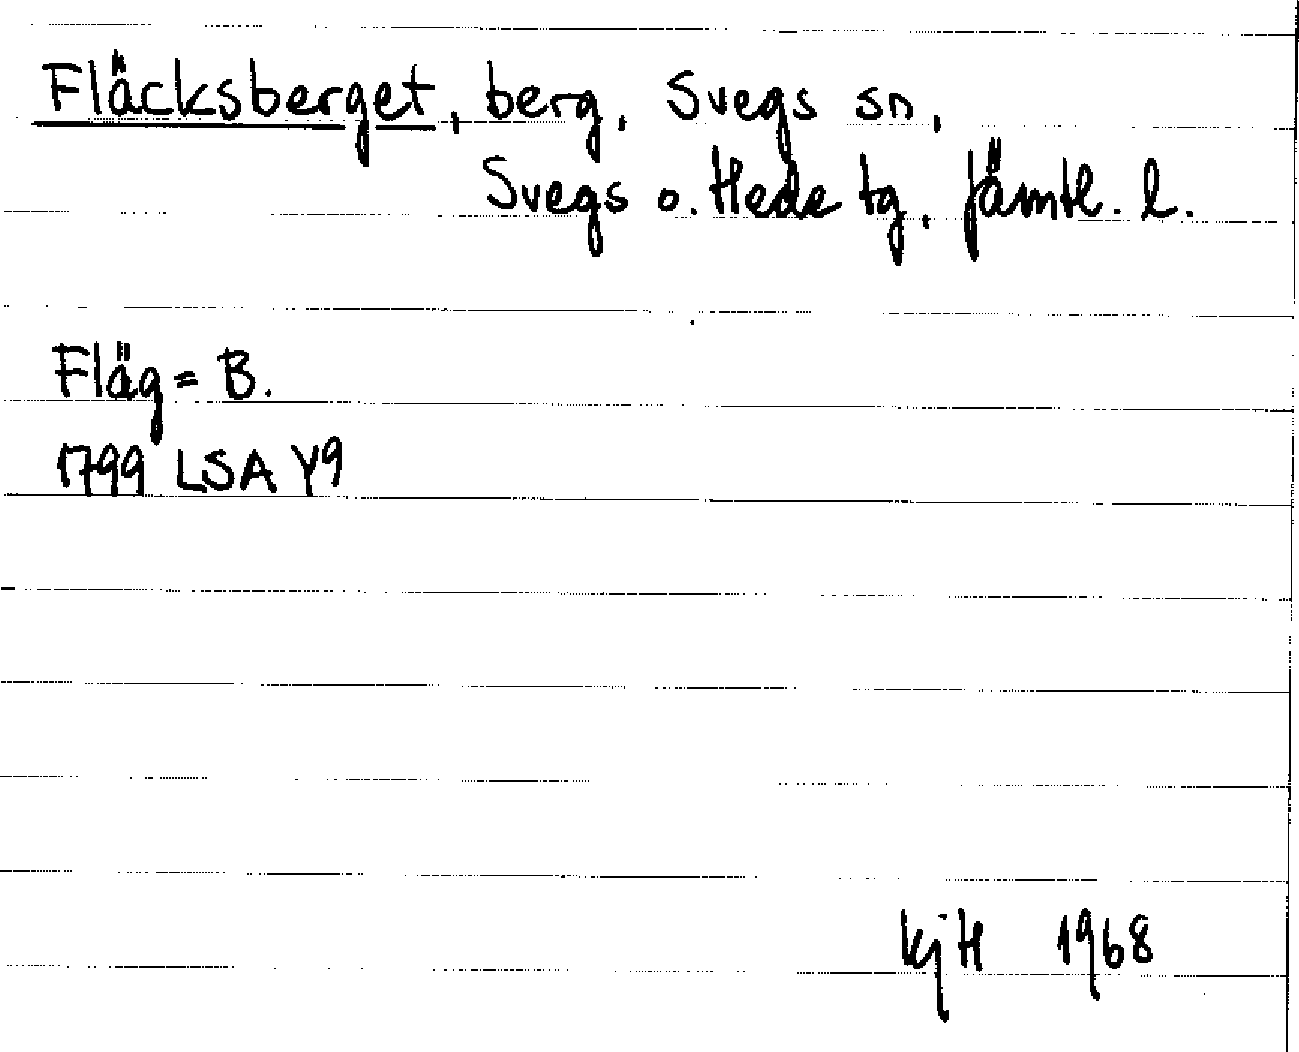 Fläcksberget, berg, Svegs sn,
Svegs o. Hede tg, Jämtl. l.
Fläg= B.
1799 LSA Y9
KjH 1968